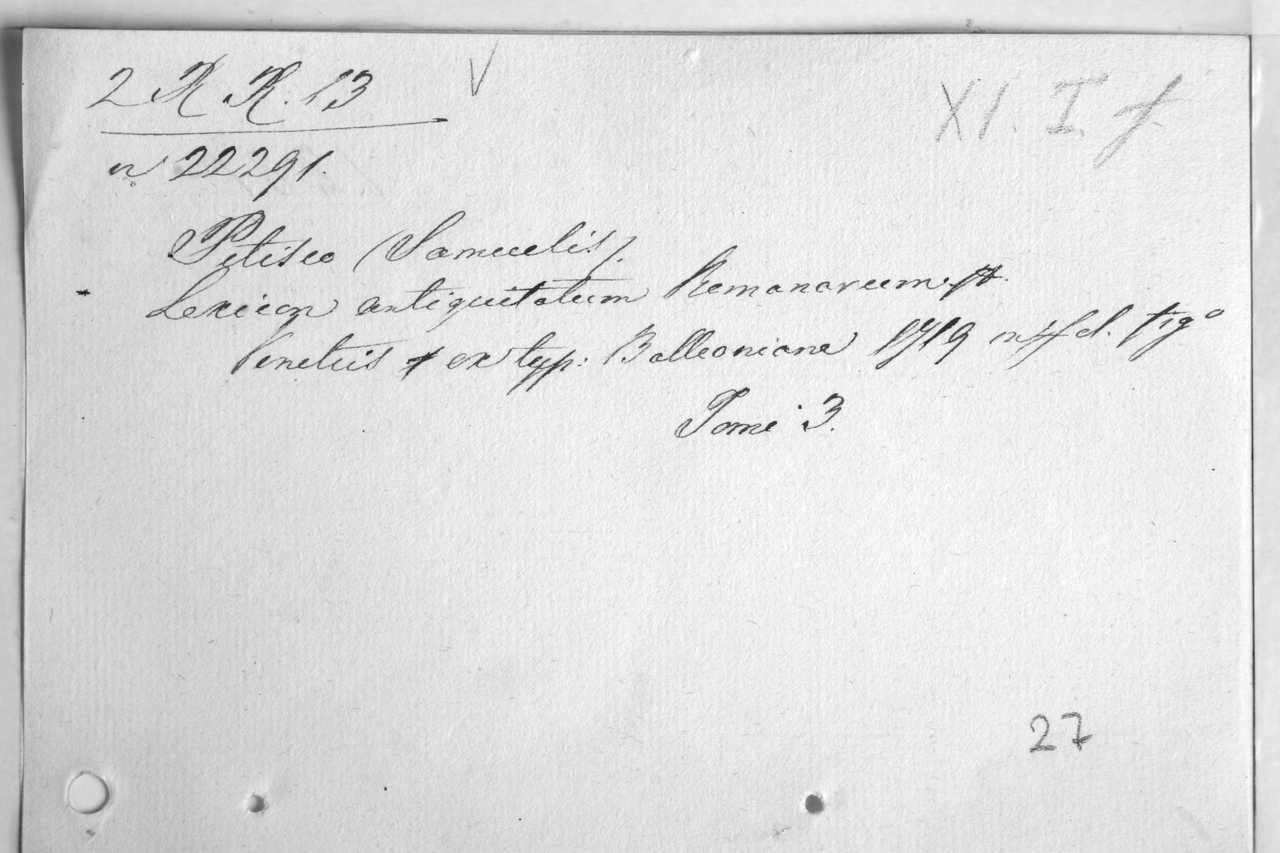 2 R. R. 13 V
XI. I. f.
nº 22291.
Pitisco (Samuelis).
Lexicon antiquitatum Romanarum.
Venetiis ex typ: Balleoniana 1719 in fol. figº
Tomi 3.
27